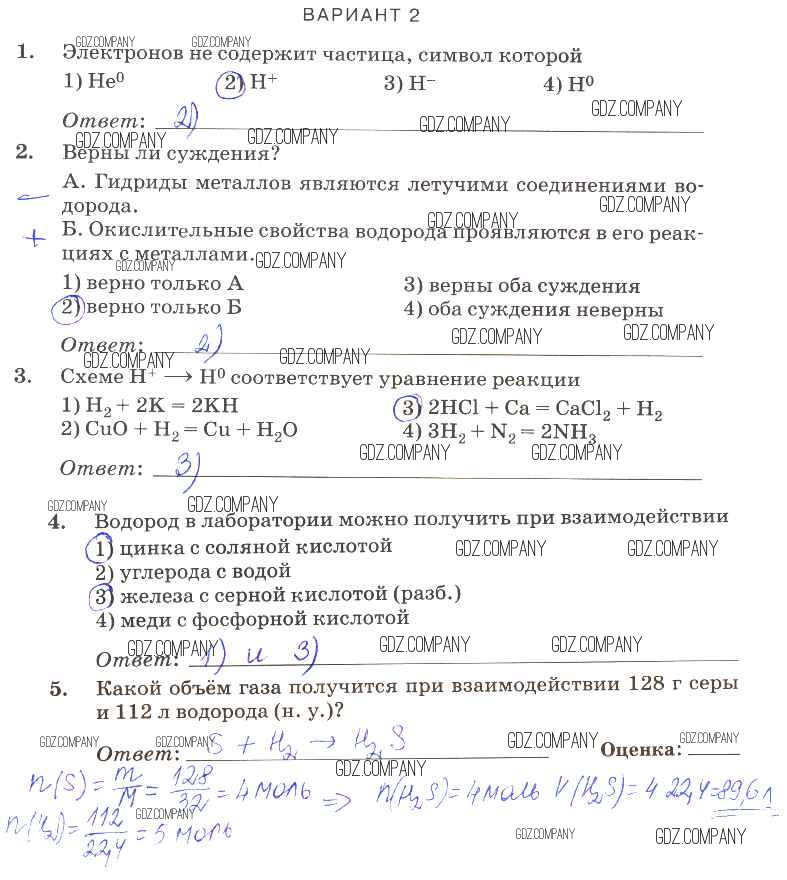 ВАРИАНТ 2
GDZ.COMPANY GDZ.COMPANY
1. Электронов не содержит частица, символ которой
1) He⁰ 2) H⁺ 3) H⁻ 4) H⁰
GDZ.COMPANY
Ответ: 2) GDZ.COMPANY
GDZ.COMPANY GDZ.COMPANY
2. Верны ли суждения?
А. Гидриды металлов являются летучими соединениями во-
− дорода. GDZ.COMPANY
GDZ.COMPANY
+ Б. Окислительные свойства водорода проявляются в его реак-
циях с металлами. GDZ.COMPANY
GDZ.COMPANY
1) верно только А 3) верны оба суждения
2) верно только Б 4) оба суждения неверны
GDZ.COMPANY GDZ.COMPANY
Ответ: 2)
GDZ.COMPANY GDZ.COMPANY
3. Схеме H⁺ ⟶ H⁰ соответствует уравнение реакции
1) H₂ + 2K = 2KH 3) 2HCl + Ca = CaCl₂ + H₂
2) CuO + H₂ = Cu + H₂O 4) 3H₂ + N₂ = 2NH₃
GDZ.COMPANY GDZ.COMPANY
Ответ: 3)
GDZ.COMPANY GDZ.COMPANY
4. Водород в лаборатории можно получить при взаимодействии
1) цинка с соляной кислотой GDZ.COMPANY GDZ.COMPANY
2) углерода с водой
3) железа с серной кислотой (разб.)
4) меди с фосфорной кислотой
GDZ.COMPANY GDZ.COMPANY GDZ.COMPANY
Ответ: 1) и 3)
5. Какой объём газа получится при взаимодействии 128 г серы
и 112 л водорода (н. у.)?
GDZ.COMPANY GDZ.COMPANY GDZ.COMPANY GDZ.COMPANY
Ответ: S + H₂ → H₂S Оценка:
GDZ.COMPANY
n(S) = m/M = 128/32 = 4 моль ⇒ n(H₂S) = 4 моль V(H₂S) = 4 22,4 = 89,6 л
GDZ.COMPANY
n(H₂) = 112/22,4 = 5 моль
GDZ.COMPANY GDZ.COMPANY